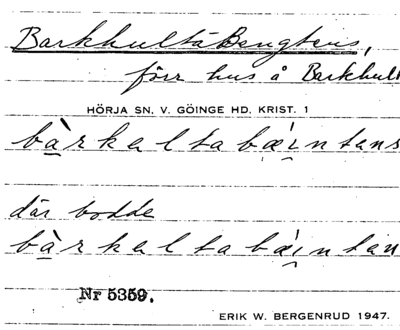 Barkhulta-Bengtens,
förr hus å Barkhult
HÖRJA SN. V. GÖINGE HD. KRIST. 1
bàrkalta bæ̀intans
där bodde
bàrkalta bæ̀intan
Nr 5359.
ERIK W. BERGENRUD 1947.